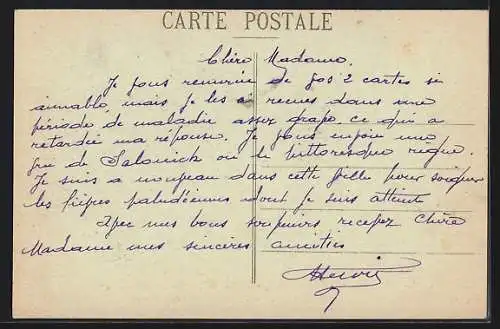 CARTE POSTALE
Chère Madame.
Je vous remercie de vos 2 cartes si
aimable, mais je les ai reçues dans une
période de maladie assez grave, ce qui a
retardée ma réponse. Je vous envoie une
vue de Salonick où le pittoresque règne.
Je suis a nouveau dans cette ville pour soigner
les fièvres paludéennes dont je suis atteint
Avec mes bons souvenirs recevez Chère
Madame mes sincères amitiés